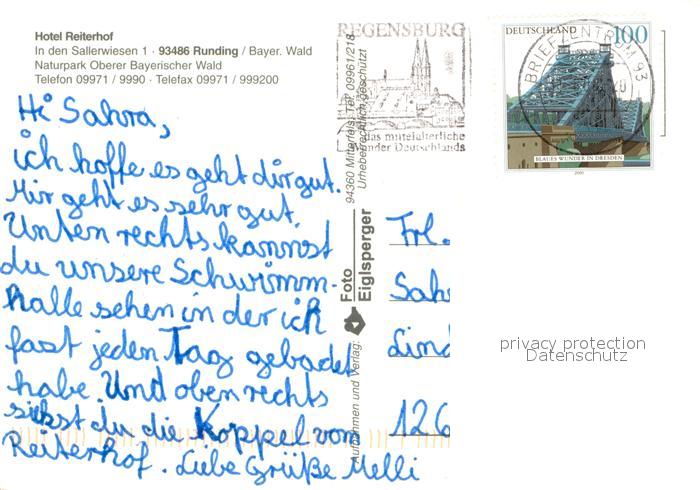 Hotel Reiterhof
In den Sallerwiesen 1 · 93486 Runding / Bayer. Wald
Naturpark Oberer Bayerischer Wald
Telefon 09971 / 9990 · Telefax 09971 / 999200
Hi Sahra,
ich hoffe es geht dir gut.
Mir geht es sehr gut.
Unten rechts kannst
du unsere Schwimm-
halle sehen in der ich
fast jeden Tag gebadet
habe. Und oben rechts
siehst du die Koppel vom
Reiterhof. Liebe Grüße Melli
REGENSBURG
das mittelalterliche
Wunder Deutschlands
94360 Mitterfels, Tel. 09961/218
Urheberrechtlich geschützt
Foto
Eiglsperger
Aufnahmen und Verlag:
DEUTSCHLAND 100
BLAUES WUNDER IN DRESDEN
2000
BRIEFZENTRUM 93
Frl.
Sah
Lind
126
privacy protection
Datenschutz